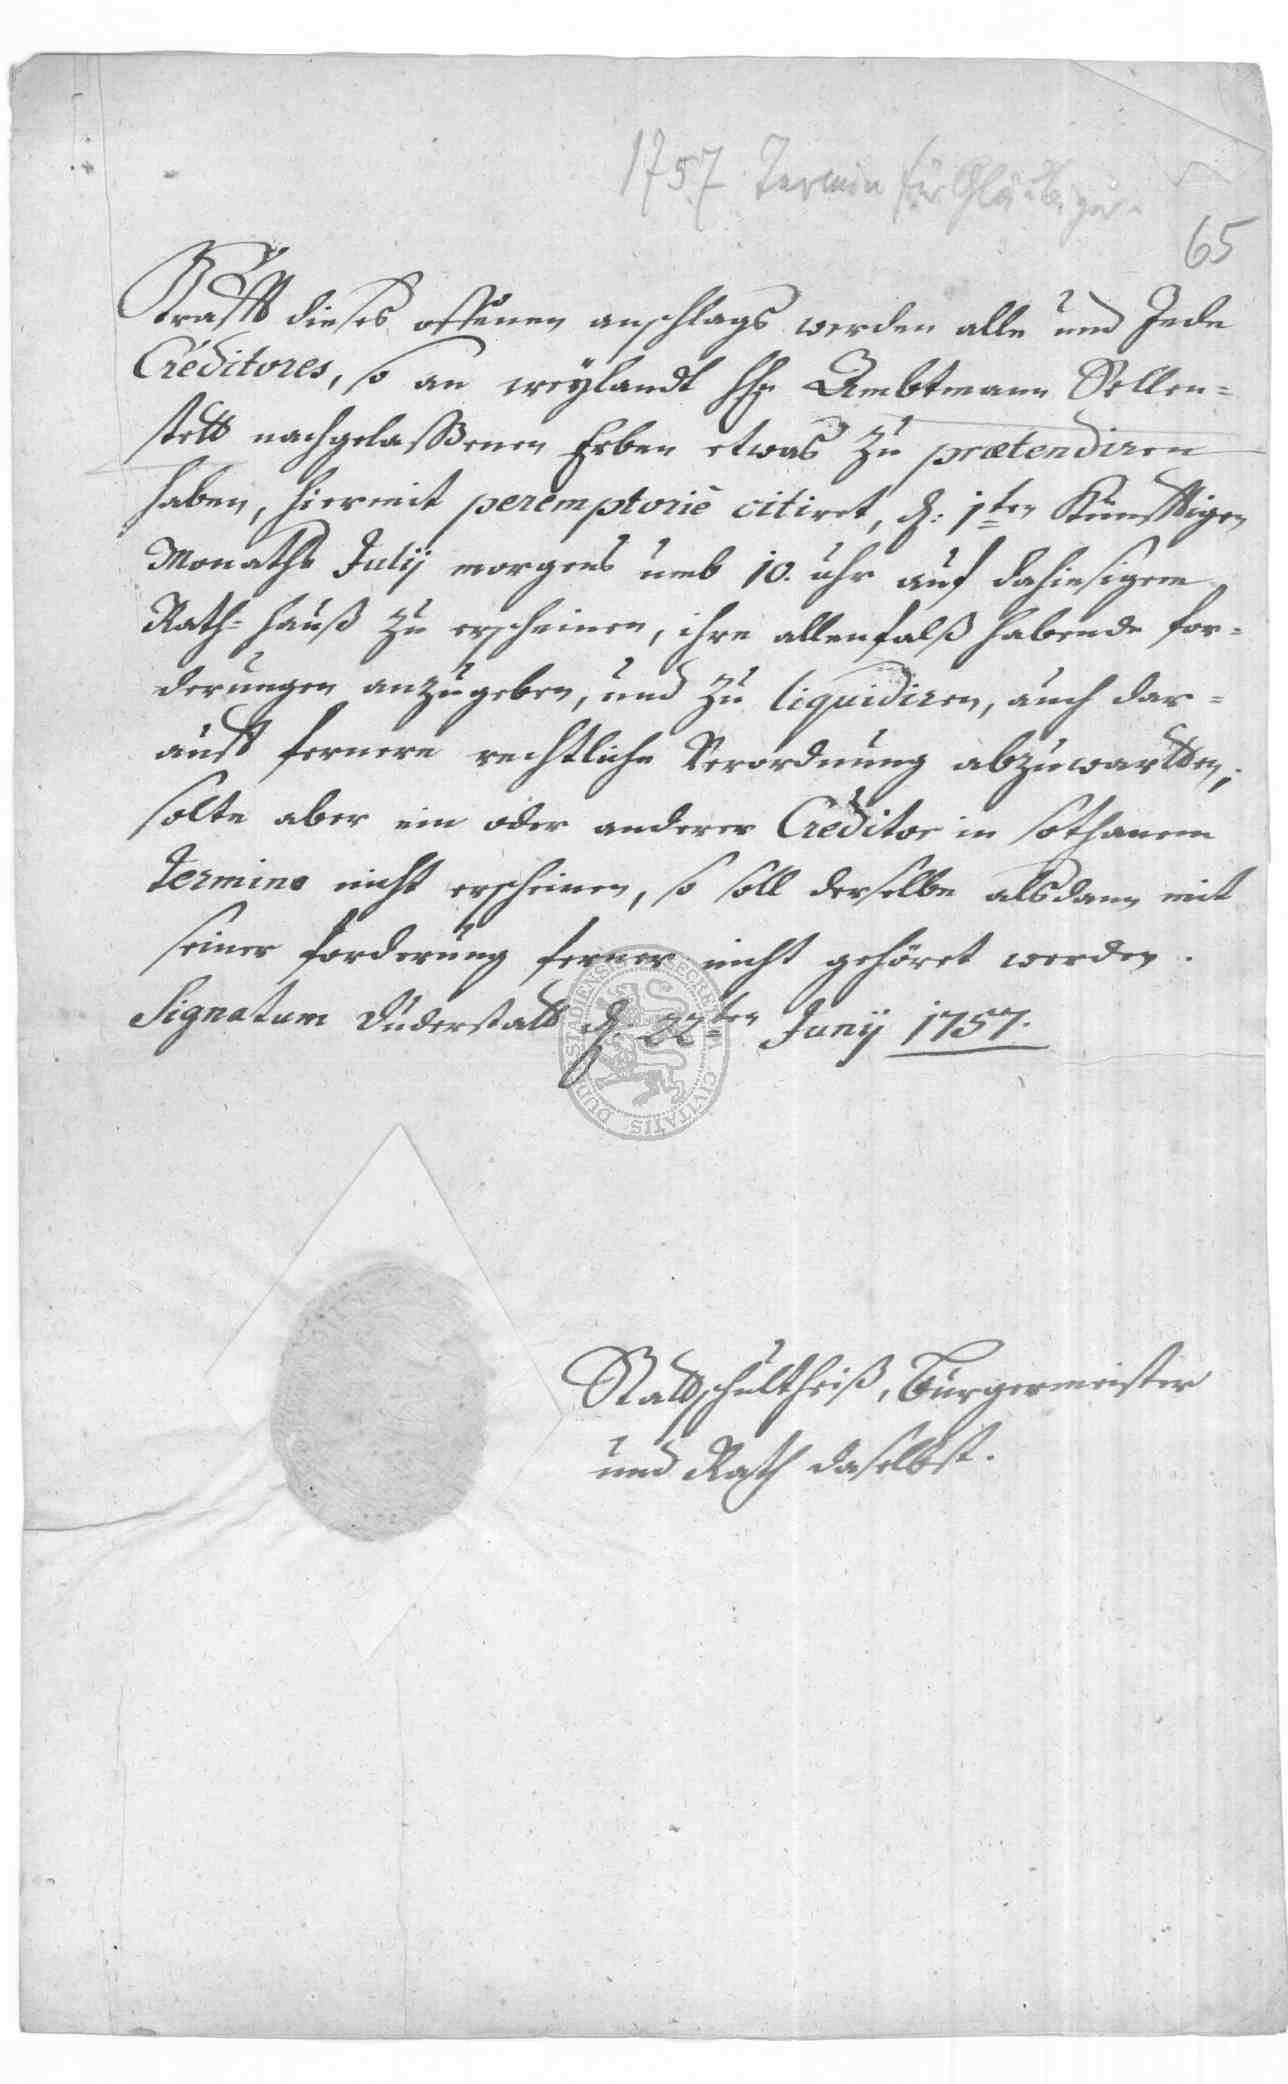 1757 Termin für Gläubiger.
65
Krafft dieses offenen anschlags werden alle und Jede
Créditores, so an weÿlandt HE Ambtmann Sellen=
stett nachgelaßenen Erben etwas zu prætendiren
haben, hiermit peremptoriè citiret, d: 1ten Künfftigen
Monaths Julÿ morgens umb 10. uhr auf dahiesigem
Rath=hauß zu erscheinen, ihre allenfalß habende for=
derungen anzugeben, und zu liquidiren, auch dar=
auff fernere rechtliche Verordnung abzuwartten;
solte aber ein oder anderer Creditor in sothanem
Termino nicht erscheinen, so soll derselbe alsdann mit
seiner forderung ferner nicht gehöret werden.
Signatum Duderstatt d: 22ten Junÿ 1757.
Stattschultheiß, Burgermeister
und Rath daselbst.